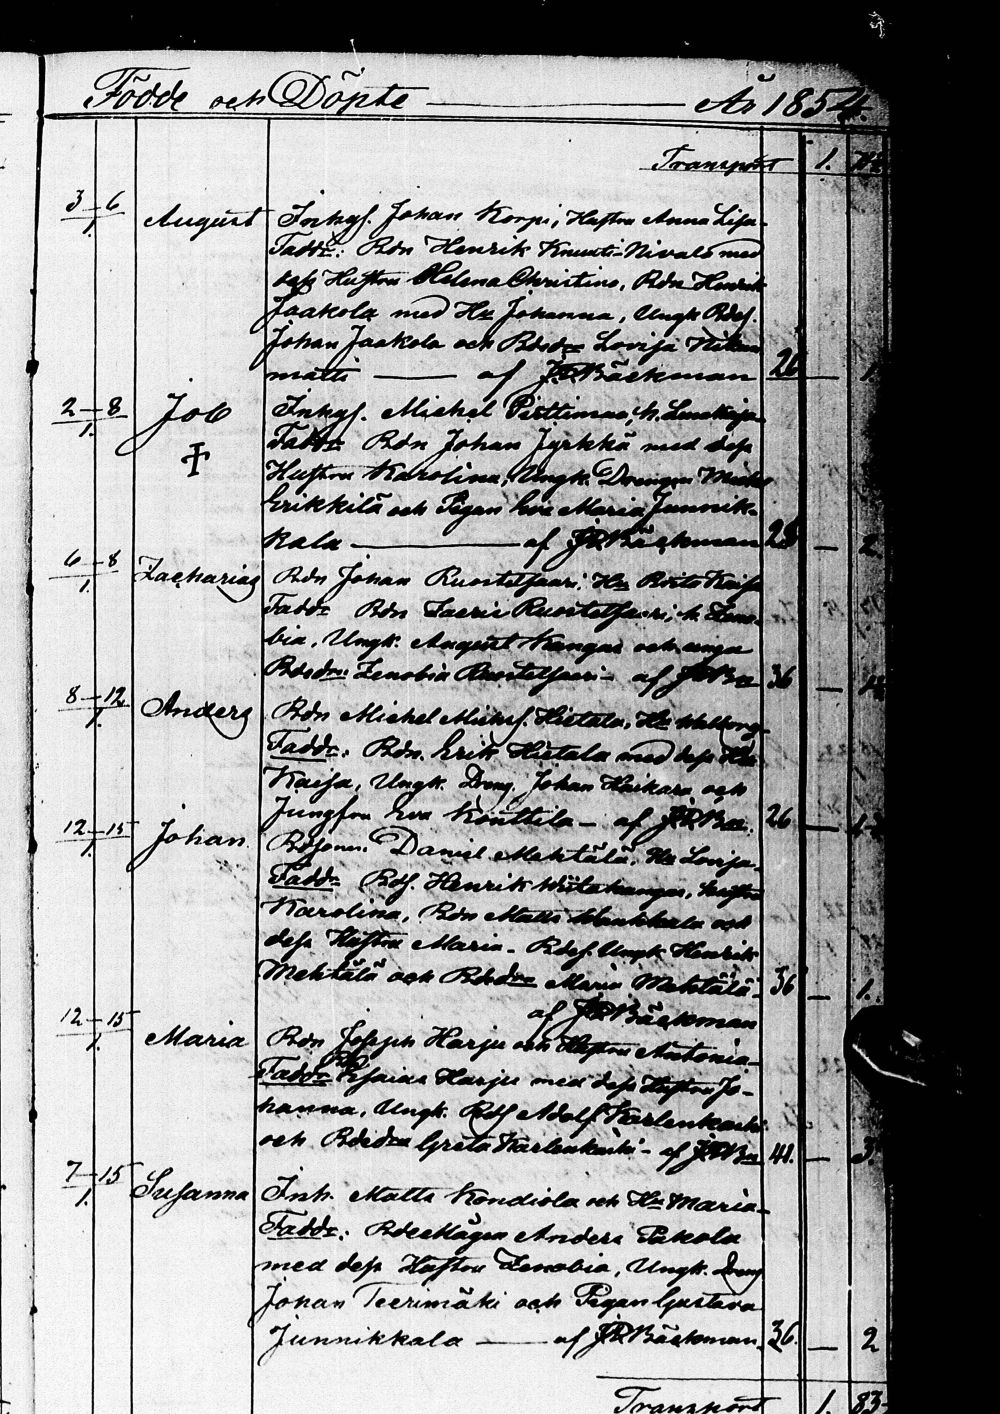 Födde och Döpte — År 1854.
Transport 1.
3–6/1. August Inhys. Johan Korpi, Hustru Anna Lisa
Faddr: Bdn Henrik Knuuti-Nivala med
dess Hustru Helena Christina, Bdn Henrik
Jaakola med Hu Johanna, Ungk. Bdes.
Johan Jaakola och Bdsdr Lovisa
matti — af J.P. Bäckman 26 — 1.
2–8/1. Job Inhys. Michel Pisttimaa, h.
Faddr Bdn Johan Jyrkkä med dess
Hustru Karolina, Ungk. Drengen Michel
Erikkilä och Pigan Eva Maria Junnik-
kala — af J.P. Bäckman 28 — 2.
6–8/1. Zacharias Bdn Johan Ruostetsaari, Hu Brita Kaisa
Faddr Bdn Ruostetsaari, h. Zeno-
bia, Ungk. August Kangas och unga
Bdsdr: Zenobia Ruostetsaari – af J.P. Bn 36 —
8–12/1. Anders Bdn Michel Michels. Hietala, Hu Walborg
Faddr: Bdn. Erik Hietala med dess Hu
Kaisa, Ungk. Dreng. Johan Harkara och
Jungfru Eva Konttila – af J.P. Bn. 26 —
12–15/1. Johan Bdsonen. Daniel Mehtälä, Hu Lovisa
Faddr Bds. Henrik Wiitakangas, hustru
Karolina, Bdn Matts och
dess Hustru Maria – Bdes. Ungk. Henrik
Mehtälä och Bdsdr Maria Mehtälä 36 — 1.
af J.P. Bäckman
12–15/1. Maria Bdn Joseph Harju och Hustru Antonia
Faddr Esaias Harju med dess Hustru Jo-
hanna, Ungk. Bds Adolf Karlenkaski
och Bdsdr Greta Karlenkaski – af J.P. Bn 41. — 3.
7–15/1. Susanna Inh. Matts Kondiola och Hu Maria
Faddr: Bdemågen Anders Pakola
med dess Hustru Zenobia, Ungk. Dreng
Johan Teerimäki och Pigan Gustava
Junnikkala — af J.P. Bäckman. 36. — 2
Transport 1. 83